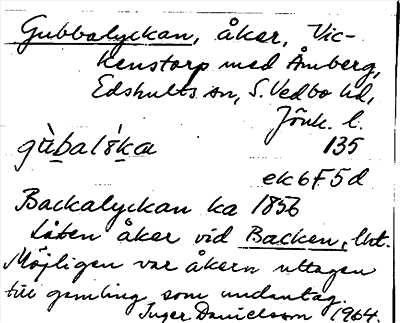 Gubbalyckan, åker, Vic-
kenstorp med Åmberg,
Edshults sn, S. Vedbo hd,
Jönk. l.
135
ek 6F5d
Backalyckan ka 1856
Liten åker vid Backen, Ut.
Möjligen var åkern uttagen
till gamling som undantag.
Inger Danielsson 1964.